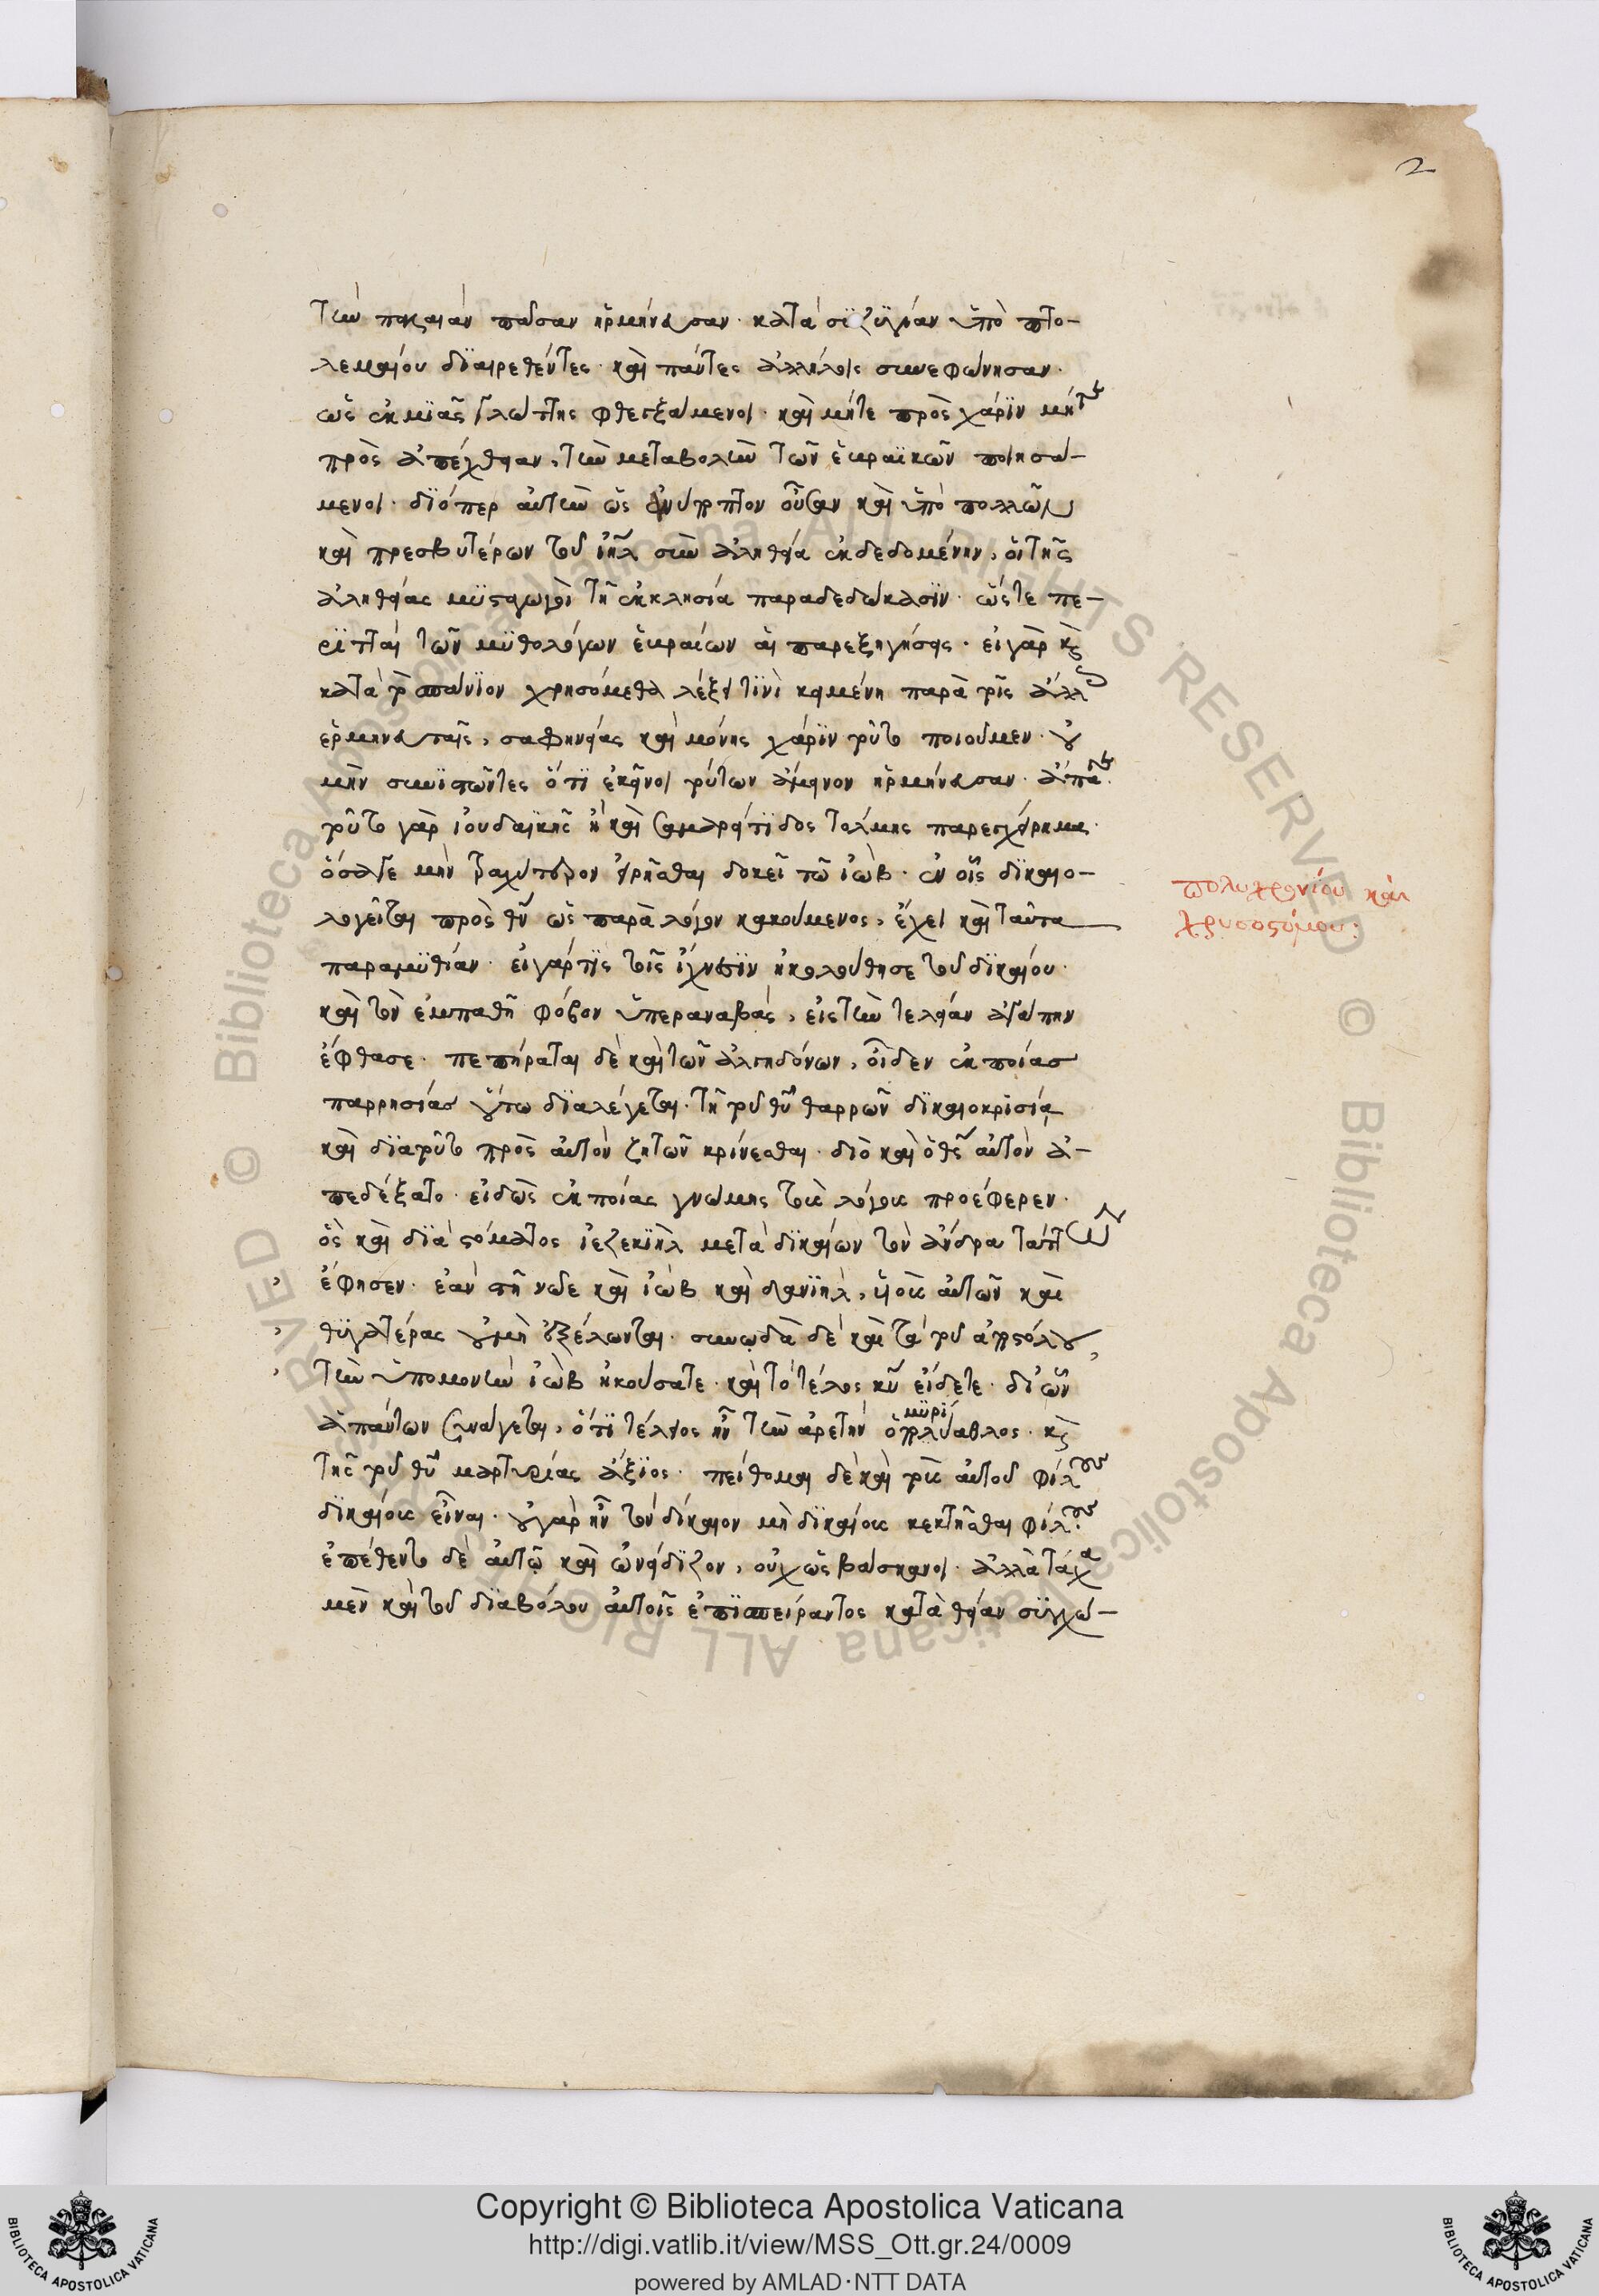 2
τὴν παλαιὰν πᾶσαν ἡρμήνευσαν· κατὰ συζυγίαν ὑπὸ πτο-
λεμαίου διαιρεθέντες· καὶ πάντες ἀλλήλοις συνεφώνησαν·
ὡς ἐκ μιᾶς γλώττης φθεγξάμενοι· καὶ μήτε πρὸς χάριν μήτε
πρὸς ἀπέχθειαν, τὴν μεταβολὴν τῶν ἑβραϊκῶν ποιησά-
μενοι· διόπερ αὐτὴν ὡς ἀνύποπτον οὖσαν καὶ ὑπὸ πολλῶν
καὶ πρεσβυτέρων τοῦ ἰηλ σὺν ἀληθεία ἐκδεδομένην, οἱ τῆς
ἀληθείας μυσταγωγοὶ τῆ ἐκκλησία παραδεδώκασιν· ὥστε πε-
ριτταὶ τῶν μυθολόγων ἑβραίων αἱ παρεξηγήσεις· εἰ γὰρ κς
κατὰ τὸ σπάνιον χρησόμεθα λέξει τινὶ κειμένη παρὰ τοῖς ἄλλοις
ἑρμηνευταῖς, σαφηνείας καὶ μόνης χάριν τοῦτο ποιοῦμεν· οὐ
μὴν συνιστῶντες ὅτι ἐκεῖνοι τούτων ἄμεινον ἡρμήνευσαν· ἄπαγε·
τοῦτο γὰρ ἰουδαϊκῆς ἢ καὶ σαμαρείτιδος τόλμης παρεγχείρημα·
ὅσα γε μὴν τραχύτερον εἰρῆσθαι δοκεῖ τῶ ἰὼβ· ἐν οἷς δικαιο-
λογεῖται πρὸς θν ὡς παρὰ λόγον κακούμενος, ἔχει καὶ ταῦτα
παραμυθίαν· εἰ γάρ τις τοῖς ἴχνεσιν ἠκολούθησε τοῦ δικαίου·
καὶ τὸν ἐμπαθῆ φόβον ὑπεραναβάς, εἰς τὴν τελείαν ἀγάπην
ἔφθασε· πεπείραται δὲ καὶ τῶν ἀλγηδόνων, οἶδεν ἐκ ποίας
παρρησίας οὕτω διαλέγεται· τῆ τοῦ θυ θαρρῶν δικαιοκρισία
καὶ διὰ τοῦτο πρὸς αὐτὸν ζητῶν κρίνεσθαι· διὸ καὶ ὁ θς αὐτὸν ἀ-
πεδέξατο· εἰδὼς ἐκ ποίας γνώμης τοὺς λόγους προέφερεν·
ὃς καὶ διὰ στόματος ἰεζεκιὴλ μετὰ δικαίων τὸν ἄνδρα τάττων
ἔφησεν· ἐὰν στῆ νῶε καὶ ἰὼβ καὶ δανιὴλ, υἱοὺς αὐτῶν καὶ
θυγατέρας οὐ μὴ ἐξέλωνται· συνωδὰ δὲ καὶ τὰ τοῦ ἀποστόλου
τὴν ὑπομονὴν ἰὼβ ἠκούσατε· καὶ τὸ τέλος κυ εἴδετε· δι' ὧν
ἁπάντων συνάγεται, ὅτι τέλειος ἦν τὴν ἀρετὴν ὁ πολύαθλος· κς
μυρί
τῆς τοῦ θυ μαρτυρίας ἄξιος· πείθομαι δὲ καὶ τοὺς αὐτοῦ φίλους
δικαίους εἶναι· οὐ γὰρ ἦν τὸν δίκαιον μὴ δικαίους κεκτῆσθαι φίλους·
ἐπέθεντο δὲ αὐτῶ καὶ ὠνείδιζον, οὐχ ὡς βάσκανοι· ἀλλὰ τάχα
μὲν καὶ τοῦ διαβόλου αὐτοῖς ἐπισπείραντος κατὰ θείαν συγχώ-
πολυχρονίου καὶ
χρυσοστόμου:
Copyright © Biblioteca Apostolica Vaticana
http://digi.vatlib.it/view/MSS_Ott.gr.24/0009
powered by AMLAD·NTT DATA
BIBLIOTECA APOSTOLICA VATICANA
BIBLIOTECA APOSTOLICA VATICANA
© Biblioteca Apostolica Vaticana ALL RIGHTS RESERVED